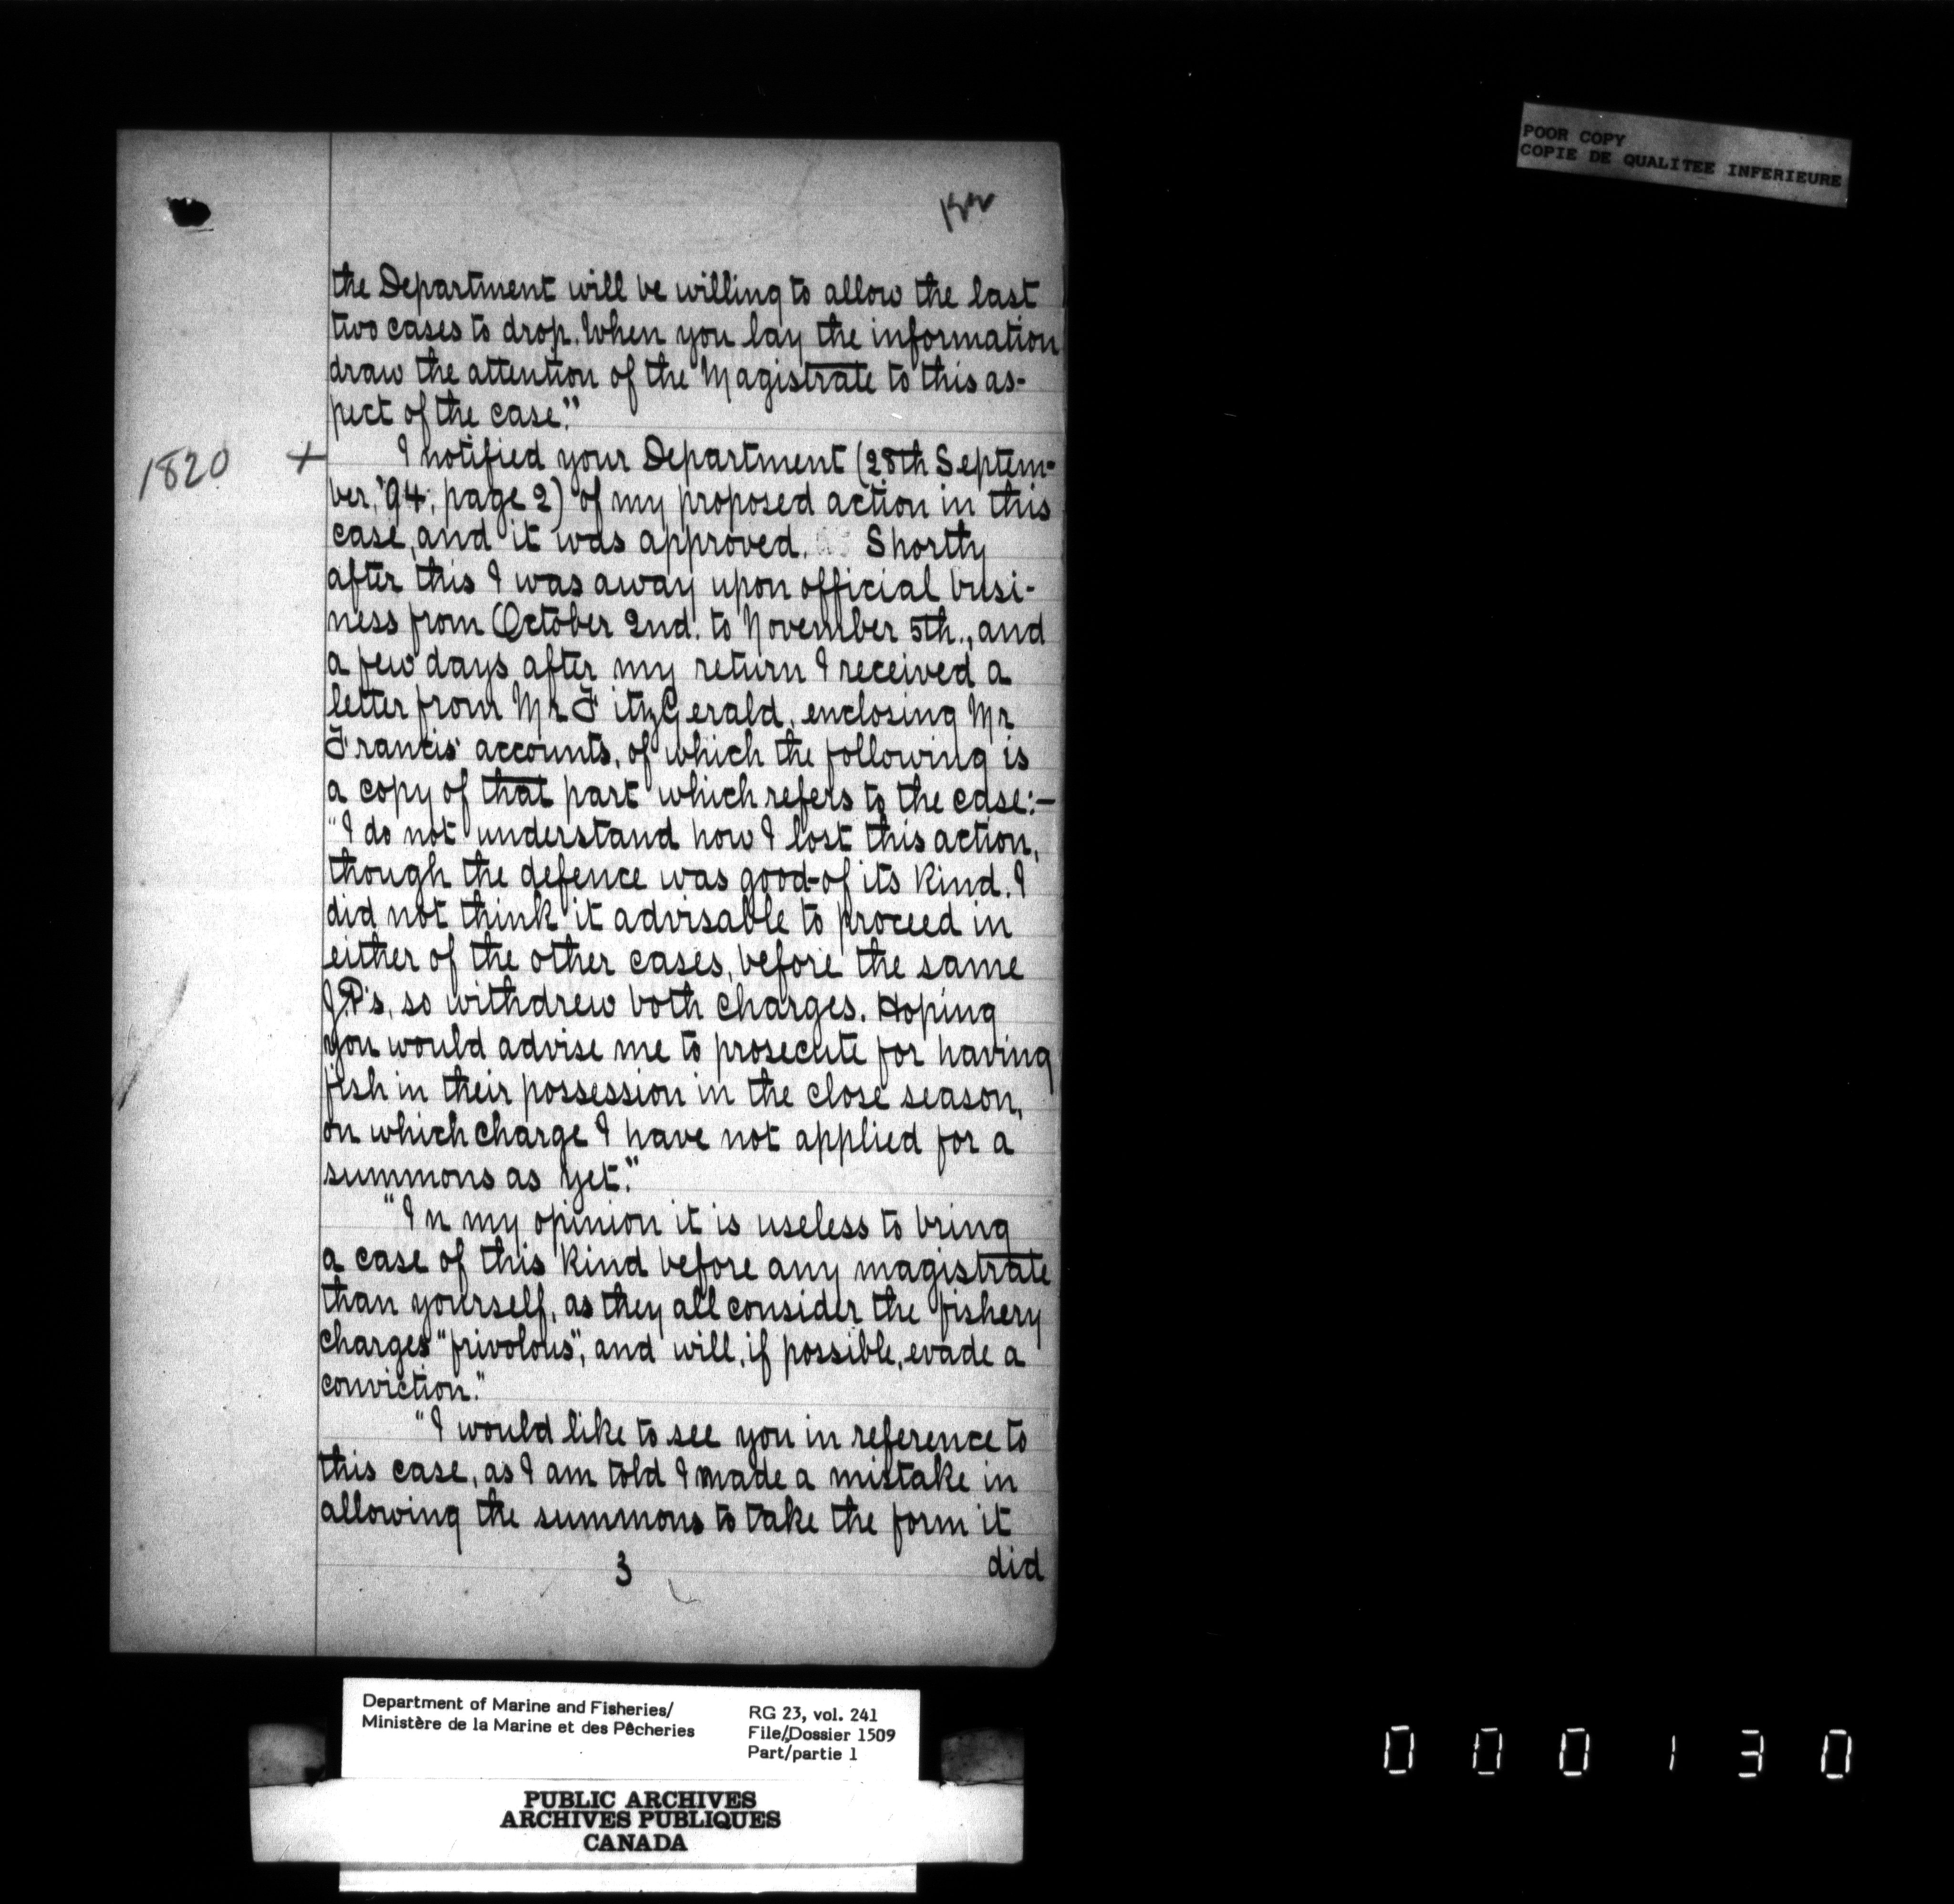 POOR COPY
COPIE DE QUALITEE INFERIEURE
the Department will be willing to allow the last
two cases to drop. When you lay the information
draw the attention of the Magistrate to this as-
pect of the case."
1820 +
I notified your Department (28th Septem-
ber, '94, page 2) of my proposed action in this
case, and it was approved. Shortly
after this I was away upon official busi-
ness from October 2nd. to November 5th., and
a few days after my return I received a
letter from Mr FitzGerald, enclosing Mr
Francis' accounts, of which the following is
a copy of that part which refers to the case:—
"I do not understand how I lost this action,
though the defence was good-of its kind. I
did not think it advisable to proceed in
either of the other cases, before the same
J.P's, so withdrew both charges. Hoping
you would advise me to prosecute for having
fish in their possession in the close season,
on which charge I have not applied for a
summons as yet."
"In my opinion it is useless to bring
a case of this kind before any magistrate
than yourself, as they all consider the fishery
charges "frivolous", and will, if possible, evade a
conviction."
"I would like to see you in reference to
this case, as I am told I made a mistake in
allowing the summons to take the form it
did
3
Department of Marine and Fisheries/
Ministère de la Marine et des Pêcheries
RG 23, vol. 241
File/Dossier 1509
Part/partie 1
PUBLIC ARCHIVES
ARCHIVES PUBLIQUES
CANADA
000130